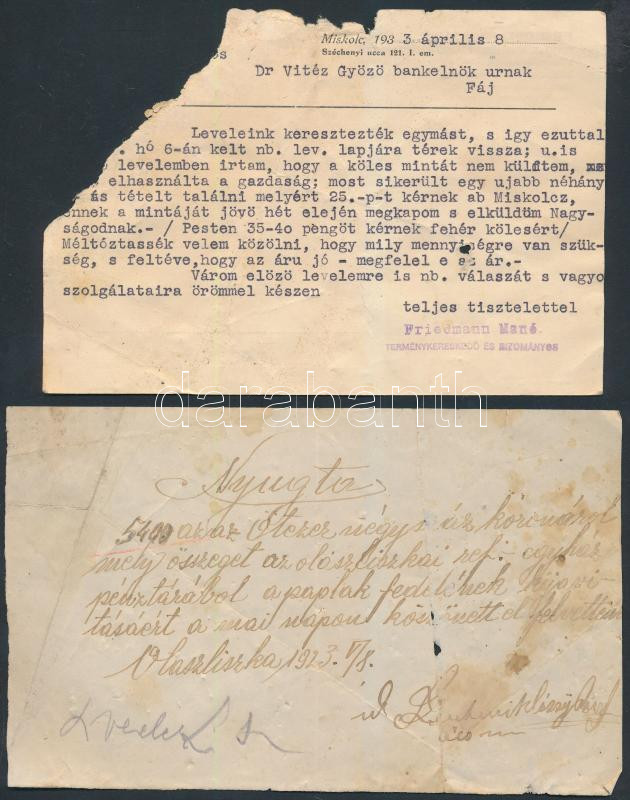 Miskolc, 193 3 április 8
Széchenyi ucca 121. I. em.
Dr Vitéz Győző bankelnök urnak
Fáj
Leveleink keresztezték egymást, s igy ezuttal
. hó 6-án kelt nb. lev. lapjára térek vissza; u.is
levelemben irtam, hogy a köles mintát nem külitem,
elhasználta a gazdaság; most sikerült egy ujabb néhány
ás tételt találni melyért 25.-p-t kérnek ab Miskolcz,
ennek a mintáját jövö hét elején megkapom s elküldöm Nagy-
ságodnak.-/ Pesten 35-4o pengöt kérnek fehér kölesért/
Méltóztassék velem közölni, hogy mily mennyiségre van szük-
ség, s feltéve,hogy az áru jó - megfelel e az ár.-
Várom elözö levelemre is nb. válaszát s vagyo
szolgálataira örömmel készen
teljes tisztelettel
Friedmann Manó.
TERMÉNYKERESKEDŐ ÉS BIZOMÁNYOS
darabanth
Nyugta
5400 azaz Ötezer négyszáz koronáról
mely összeget az olaszliszkai ref. egyház
pénztárából a paplak fedelének kijavi
tásáért a mai napon köszönettel felvettem
Olaszliszka 1923. V/8.
id